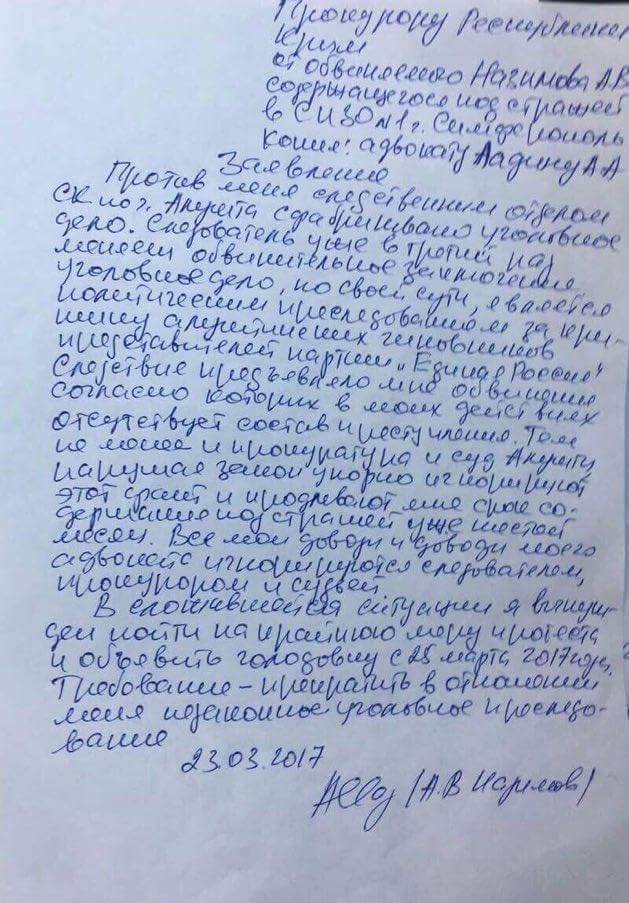 Прокурору Республики
Крым
от обвиняемого Назимова А.В
содержащегося под стражей
в СИЗО №1 г. Симферополь
копия: адвокату Ладину А.А
Заявление
Против меня следственным отделом
СК по г. Алушта сфабриковано уголовное
дело. Следователь уже в третий раз
меняет обвинительное заключение
уголовное дело, по своей сути, является
политическим преследованием за кри-
тику алуштинских чиновников
представителей партии "Единая Россия"
Следствие предъявляло мне обвинения
согласно которых в моих действиях
отсутствует состав преступления. Тем
не менее и прокуратура и суд Алушты
нарушая закон упорно игнорируют
этот факт и продлевают мне срок со-
держания под стражей уже шестой
месяц. Все мои доводы и доводы моего
адвоката игнорируются следователем,
прокурором и судьей
В сложившейся ситуации я вынуж-
ден пойти на крайнюю меру протеста
и объявить голодовку с 25 марта 2017 года.
Требование – прекратить в отношении
меня незаконное уголовное преследо-
вание
23.03.2017
(А.В Назимов)